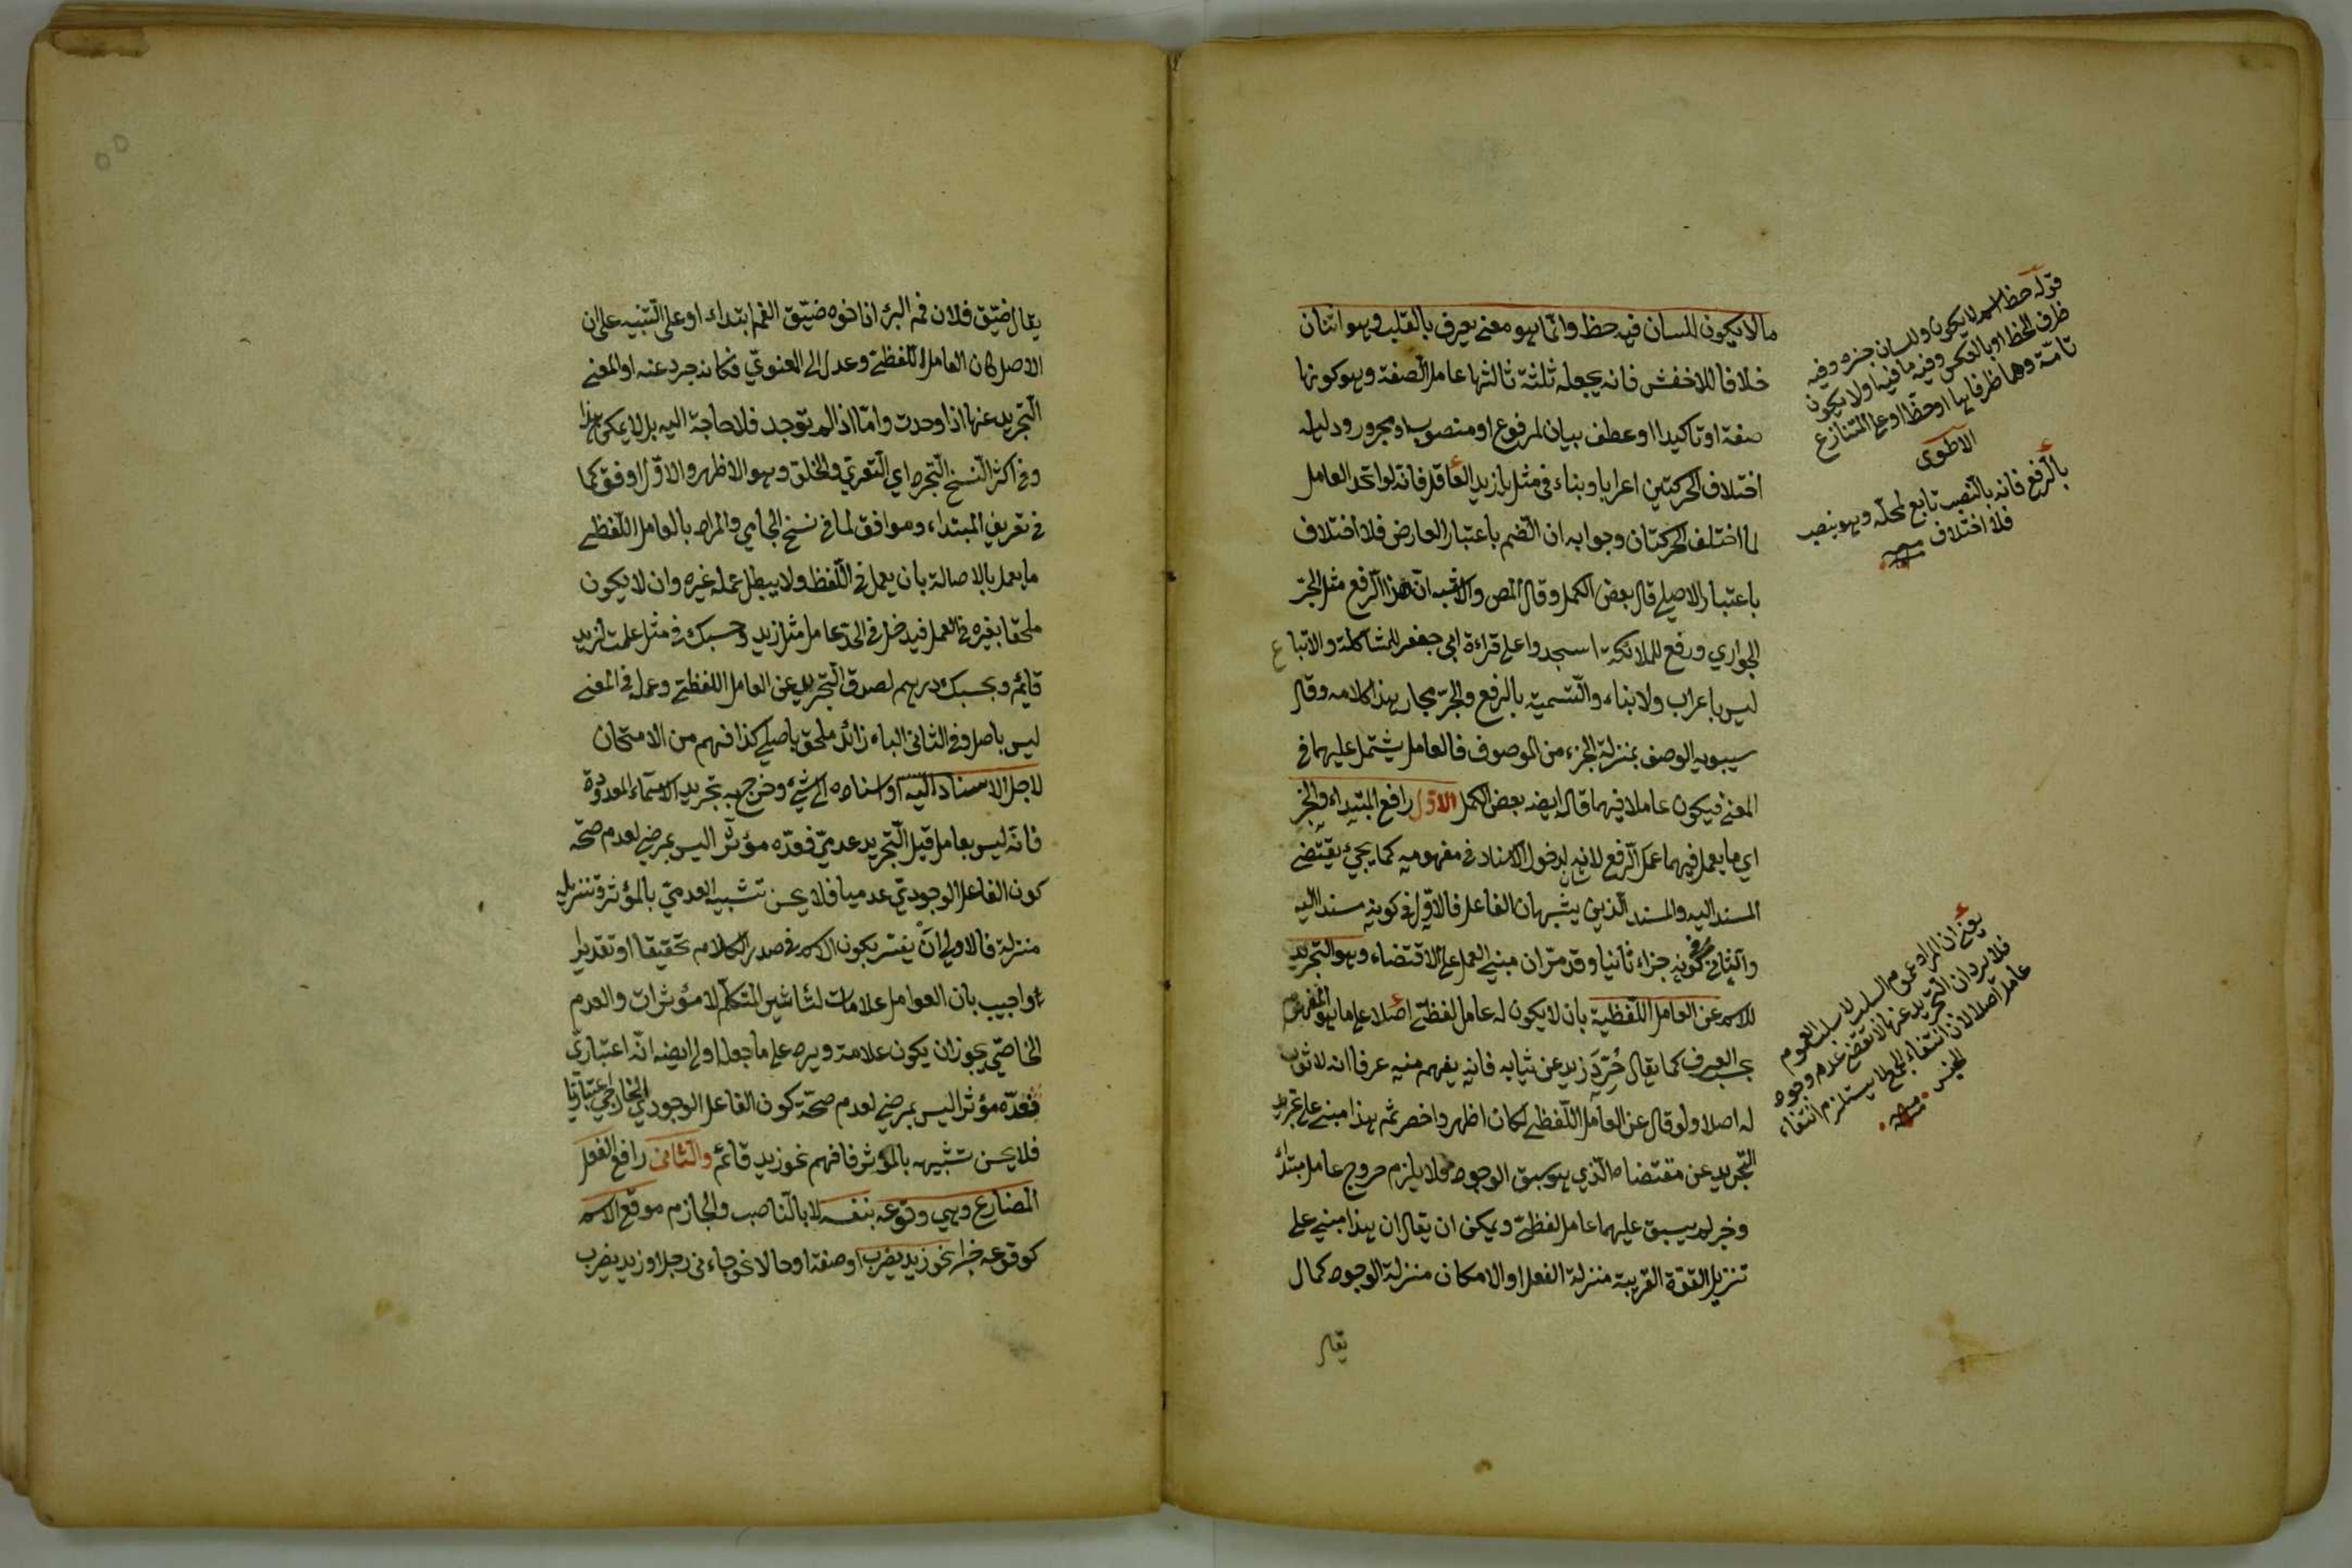 ما لا يكون للسان فيه حظ وانما هو معنى يعرف بالقلب وهو اثنان
خلافا للاخفش فانه يجعله ثلثة ثالثها عامل الصفة وهو كونها
صفة او تاكيدا او عطف بيان لمرفوع او منصوب او مجرور ودليله
اختلاف الحركتين اعرابا وبناء في مثل يا زيد العاقل فانه لو اتحد العامل
لما اختلف الحركتان وجوابه ان الضم باعتبار العارض فلا اختلاف
باعتبار الاصلي قال بعض الكمل وقال المص والاشبه ان هذا الرفع مثل الجر
الجواري ورفع للملائكة اسجدوا على قراءة ابي جعفر للمشاكلة والاتباع
ليس باعراب ولا بناء والتسمية بالرفع والجر مجاز هذا كلامه وقال
سيبويه الوصف بمنزلة الجزء من الموصوف فالعامل يشتمل عليهما في
المعنى فيكون عاملا فيهما قاله ايضه بعض الكمل الاول رافع المبتداء والخبر
اي ما يعمل فيهما عمل الرفع لانه لدخول الاسناد في مفهوميه كما يجئ يقتضي
المسند اليه والمسند الذين يشبهان الفاعل فالاول في كونه مسندا اليه
والثاني في كونه جزاء ثانيا وقد مر ان مبنى العمل على الاقتضاء وهو التجريد
للاسم عن العامل اللفظية بان لا يكون له عامل لفظي اصلا على ما هو المفهوم
بحسب العرف كما يقال جُرِّدَ زيد عن ثيابه فانه يفهم منه عرفا انه لا ثوب
له اصلا ولو قال عن العامل اللفظي لكان اظهر واخصر ثم هذا مبني على تجريد
التجريد عن مقتضاه الذي هو سبق الوجود فلا يلزم خروج عامل مبتدأ
وخبر لم يسبق عليهما عامل لفظي ويمكن ان يقال ان هذا مبني على
تنزيل القوة القريبة منزلة الفعل او الامكان منزلة الوجود كما
يقال
قوله حظ اسم لا يكون وللسان خبره وفيه
ظرف الحظ او بالعكس وفيه ما فيه او لا يكون
تامة وهما ظرفا لها او حظا او على التنازع
الاطوى
بالرفع فانه بالنصب تابع لمحله وهو بنصب
فلا اختلاف منه
يعني ان المراد عموم السلب لا سلب العموم
فلا يرد ان التجريد عنها لا يقتضي عدم وجود
عامل اصلا لان انتفاء الجمع لا يستلزم انتفاء
الجنس منه
يقال ضيق فلان فم البئر اذا اخوه ضيق الفم ابتداء او على التنبيه على ان
الاصل كان العامل اللفظي وعدل الى المعنوي فكانه جرد عنه او المعنى
التجريد عنها اذا وجدت واما اذا لم توجد فلا حاجة اليه بل لا يمكن هذا
وفي اكثر النسخ التجرد اي التعري والخلو وهو الاظهر والاول اوفق كما
في تعريف المبتداء وموافق لما في نسخ الجامي والمراد بالعامل اللفظي
ما يعمل بالاصالة بان يعمل في اللفظ ولا يبطل عمله غيره وان لا يكون
ملحقا بغيره في العمل فيدخل في الحد عامل مثل زيد وحسبك في مثل علمت لزيد
قائم وبحسبك درهم لصدق التجريد عن العامل اللفظي وعمله في المعنى
ليس باصل وفي الثاني الباء زائد ملحق باصلي كذا فهم من الامتحان
لاجل الاسناد اليه او اسناده الى شئ وخرج به تجريد الاسماء المعدودة
فانه ليس بعامل قيل التجريد عدمي فعده مؤثرا ليس بمرضي لعدم صحة
كون الفاعل الوجودي عدميا فلا يحسن تشبيه العدمي بالمؤثر وتنزيله
منزلة فالاولى ان يفسر بكون الاسم في صدر الكلام تحقيقا او تقديرا
اواجيب بان العوامل علامات لتاثير المتكلم لا مؤثرات والعدم
الخاص يجوز ان يكون علامة ويرد على ما جعله اولى ايضه انه اعتباري
فعده مؤثرا ليس بمرضي لعدم صحة كون الفاعل الوجودي الخارجي اعتباريا
فلا يحسن تشبيهه بالمؤثر فافهم نحو زيد قائم والثاني رافع الفعل
المضارع وهي وقوعه بنفسه لا بالناصب والجازم موقع الاسم
كوقوعه خبرا نحو زيد يضرب او صفة او حالا نحو جاءني رجل او زيد يضرب